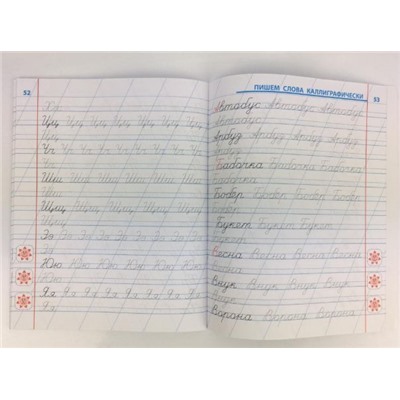 52
Хх
Цц Цц Цц Цц Цц Цц Цц
Цц
Чч Чч Чч Чч Чч Чч Чч Чч
Чч
Шш Шш Шш Шш Шш Шш
Шш
Щщ Щщ Щщ Щщ Щщ Щщ
Щщ
Ээ Ээ Ээ Ээ Ээ Ээ Ээ Ээ
Ээ
Юю Юю Юю Юю Юю Юю
Юю
Яя Яя Яя Яя Яя Яя Яя Яя
Яя
ПИШЕМ СЛОВА КАЛЛИГРАФИЧЕСКИ
53
Автобус Автобус Автобус
Автобус
Арбуз Арбуз Арбуз Арбуз
Арбуз
Бабочка Бабочка Бабочка
Бабочка
Бобёр Бобёр Бобёр Бобёр
Бобёр
Букет Букет Букет
Букет
Весна Весна Весна Весна
Весна
Внук Внук Внук Внук
Внук
Ворона Ворона Ворона